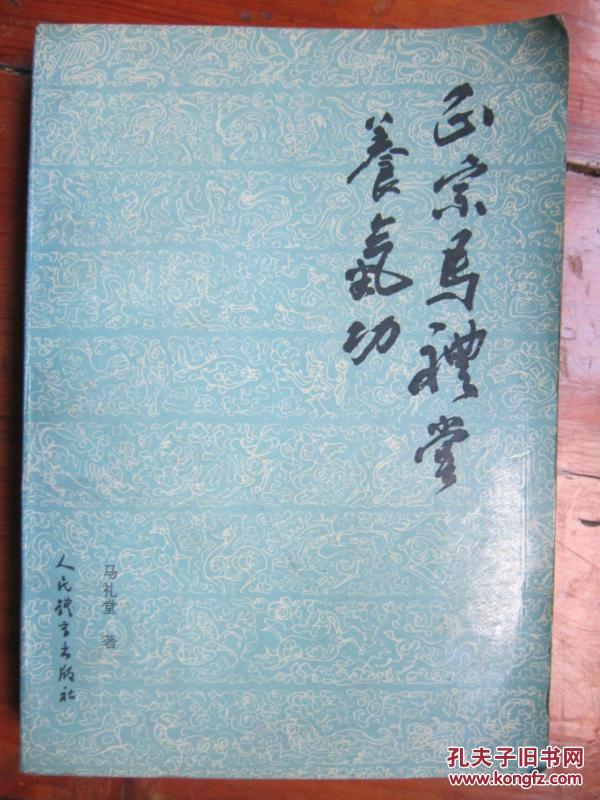 正宗马禮堂
養氣功
马礼堂 著
人民體育出版社
孔夫子旧书网
www.kongfz.com